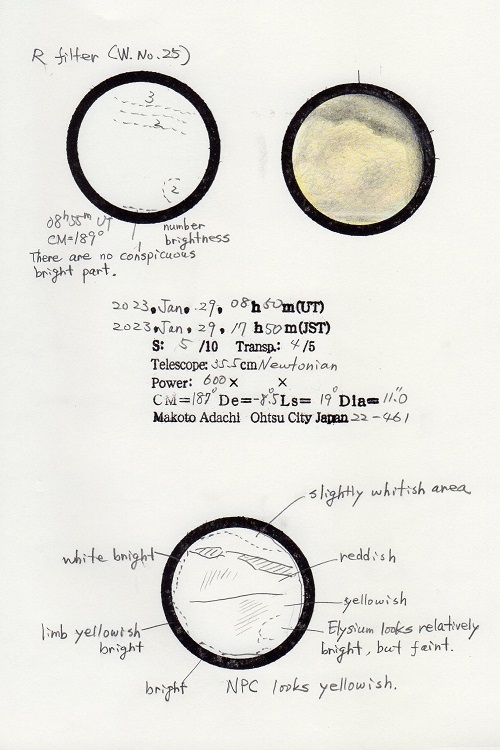 R filter (W. No. 25)
3
2
2
08h55m UT
CM=189°
number
brightness
There are no conspicuous
bright part.
2023, Jan. 29, 08h50m(UT)
2023, Jan, 29, 17h50m(JST)
S: 5 /10 Transp.: 4/5
Telescope: 35.5cm Newtonian
Power: 600× ×
CM=187° De=-8.5 Ls= 19° Dia= 11."0
Makoto Adachi Ohtsu City Japan 22-461
slightly whitish area
white bright
reddish
yellowish
limb yellowish
bright
Elysium looks relatively
bright, but faint.
bright
NPC looks yellowish.